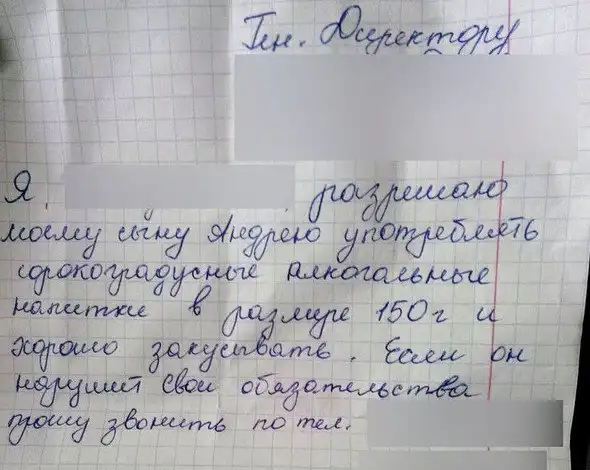 Ген. Директору
Я, разрешаю
моему сыну Андрею употреблять
сорокоградусные алкогольные
напитки в размере 150 г и
хорошо закусывать. Если он
нарушит свои обязательства
прошу звонить по тел.